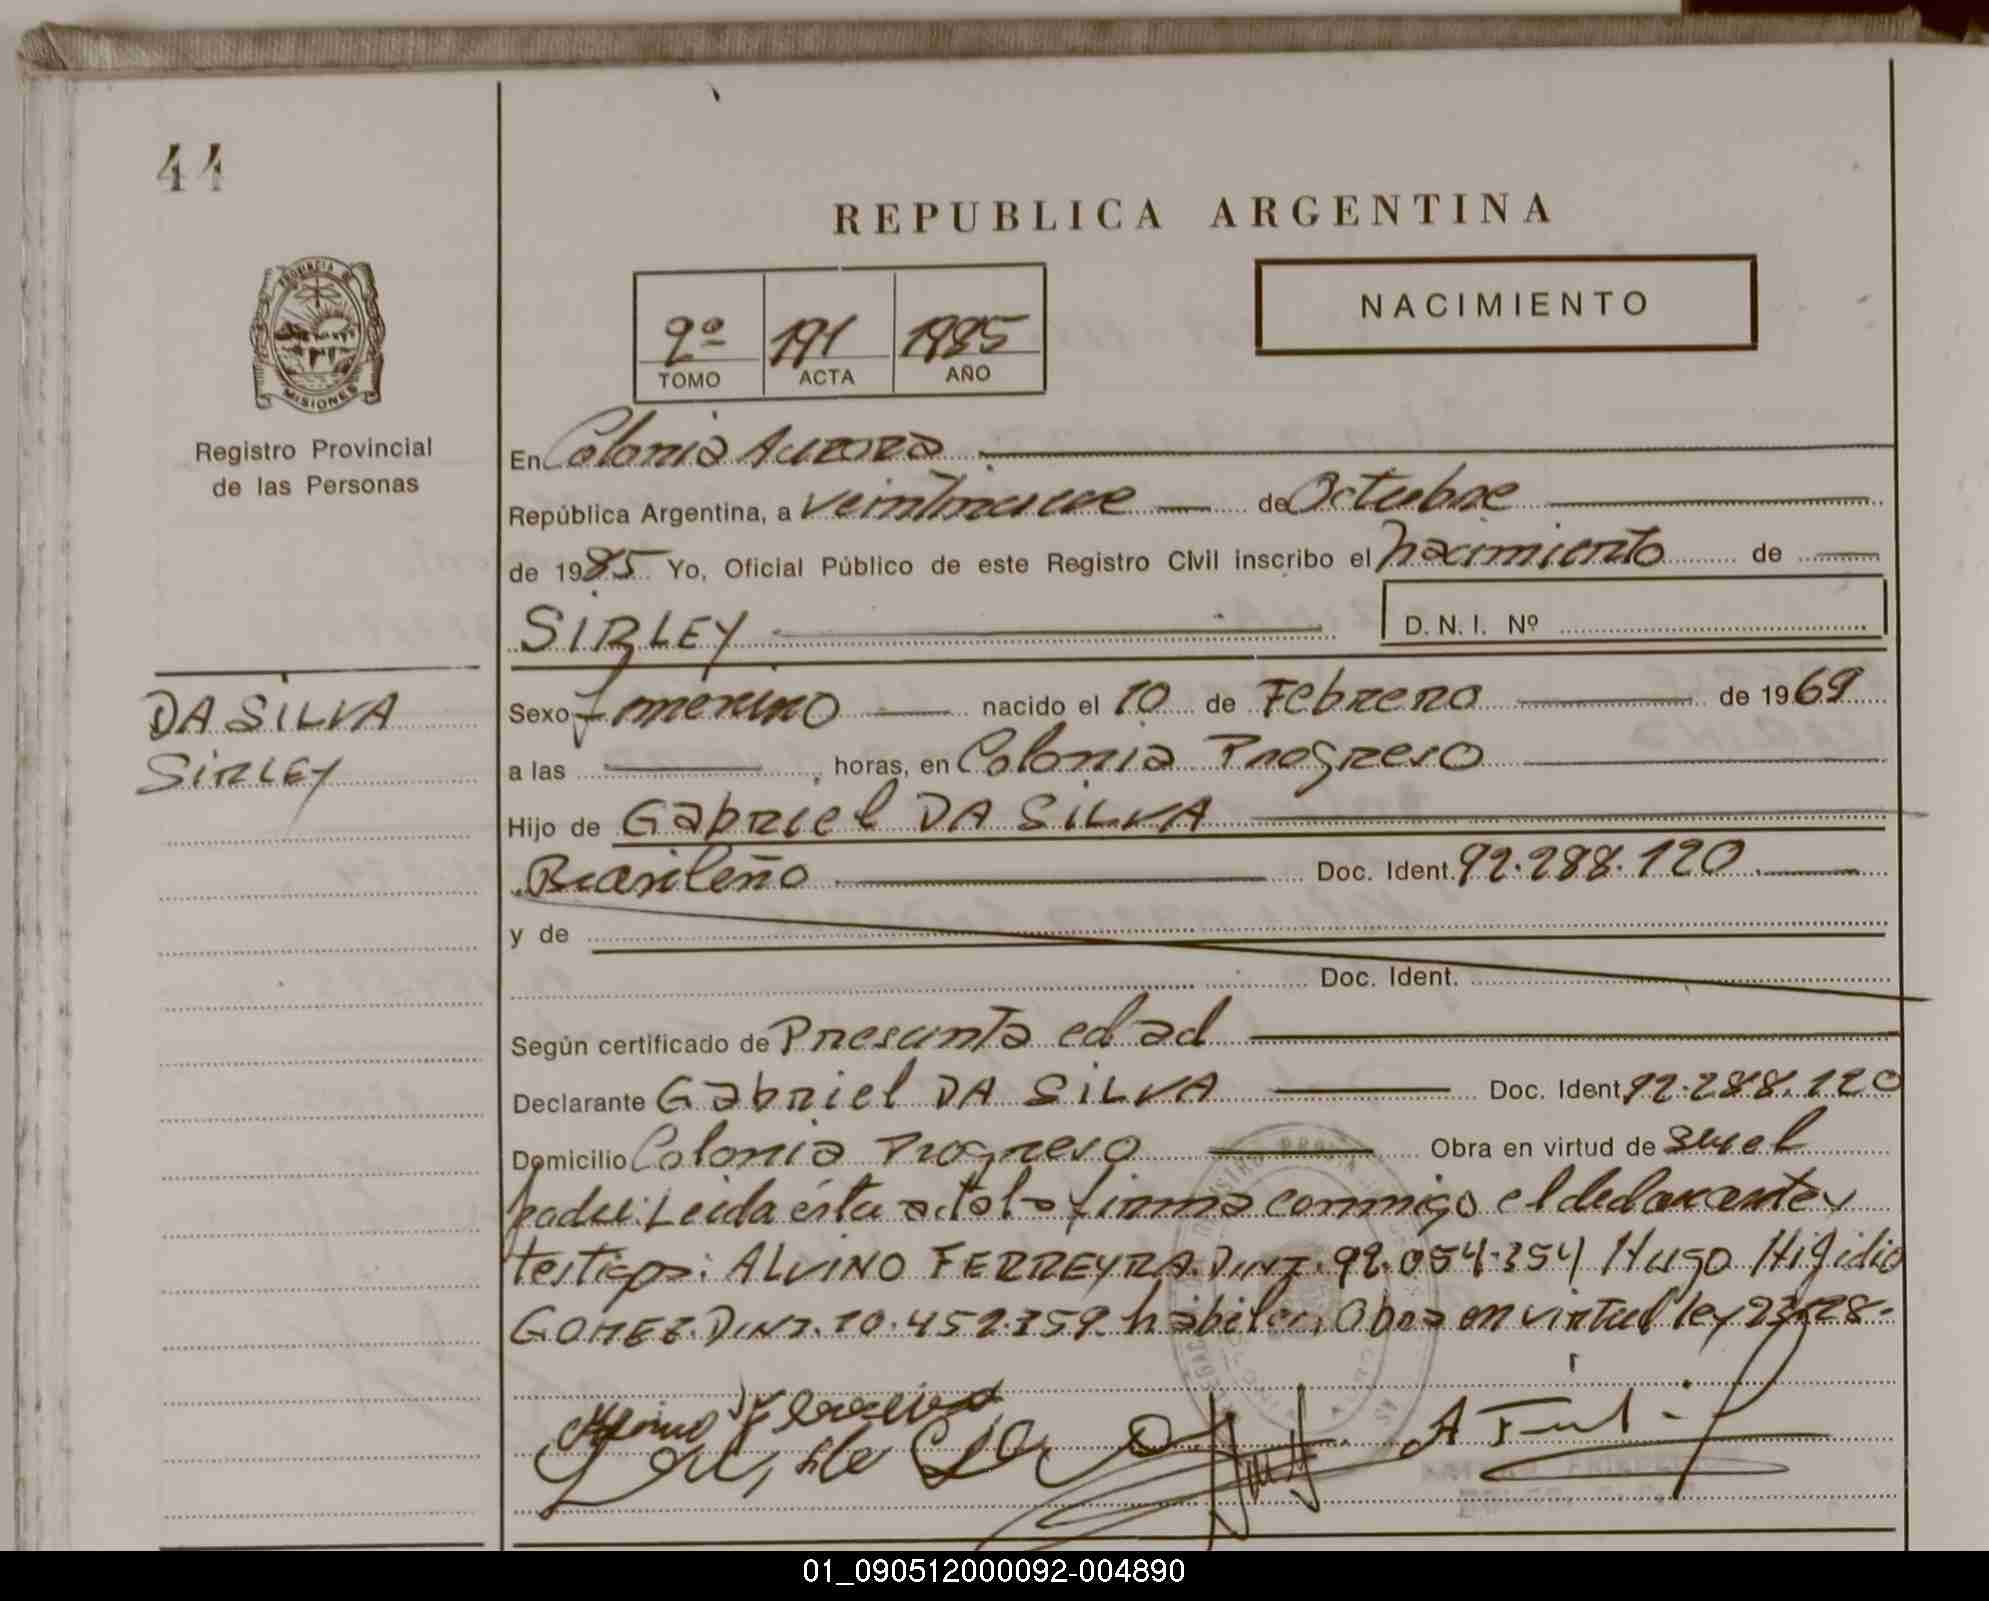 44
REPUBLICA ARGENTINA
PROVINCIA DE
MISIONES
Registro Provincial
de las Personas
2º 191 1985
TOMO ACTA AÑO
NACIMIENTO
En Colonia Aurora
República Argentina, a veintinueve de Octubre
de 1985 Yo, Oficial Público de este Registro Civil inscribo el nacimiento de
SIRLEY D.N.I. Nº
DA SILVA
SIRLEY
Sexo femenino nacido el 10 de Febrero de 1969
a las horas, en Colonia Progreso
Hijo de Gabriel DA SILVA
Brasileño Doc. Ident. 92.288.120
y de
Doc. Ident.
Según certificado de Presunta edad
Declarante Gabriel DA SILVA Doc. Ident. 92.288.120
Domicilio Colonia Progreso Obra en virtud de ser el
padre. Leida ésta acta la firma conmigo el declarante y
testigos: ALVINO FERREYRA. D.N.I. 92.054.354 Hugo Higidio
GOMEZ. D.N.I. 10.452.359 hábiles, Obra en virtud ley 23.128-
01_090512000092-004890